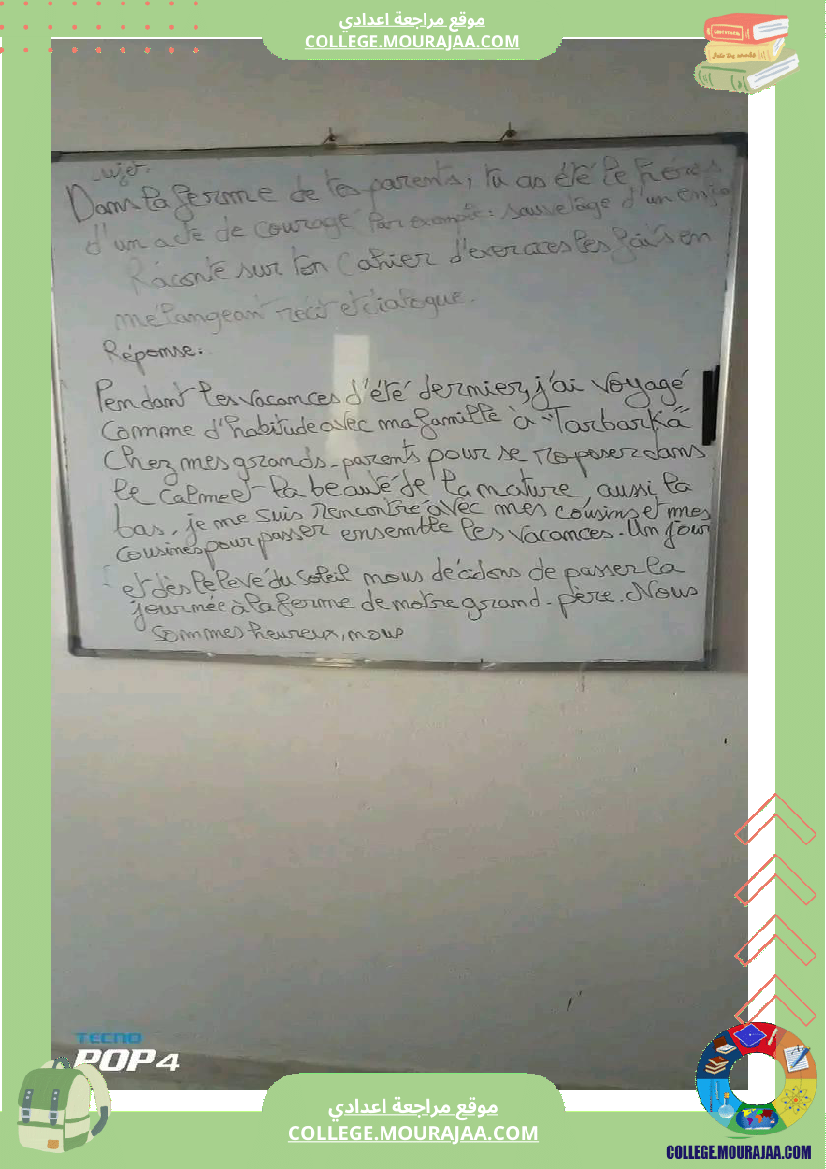 موقع مراجعة اعدادي
COLLEGE.MOURAJAA.COM
ujet.
Dans la ferme de tes parents, tu as été le héros
d'un acte de courage Par exemple : sauvetage d'un
Raconte sur ton Cahier d'exercices les faits en
mélangeant récit et dialogue.
Réponse:
Pendant les vacances d'été dernier, j'ai voyagé
Comme d'habitude avec ma famille à "Tarbarka"
Chez mes grands-parents pour se reposer dans
le calme et la beauté de la nature, aussi la
bas, je me suis rencontré avec mes cousins et mes
Cousines pour passer ensemble les vacances. Un jour
et dès le levé du soleil nous décidons de passer la
journée à la ferme de notre grand-père. Nous
Sommes heureux, nous
TECNO
POP 4
موقع مراجعة اعدادي
COLLEGE.MOURAJAA.COM
COLLEGE.MOURAJAA.COM